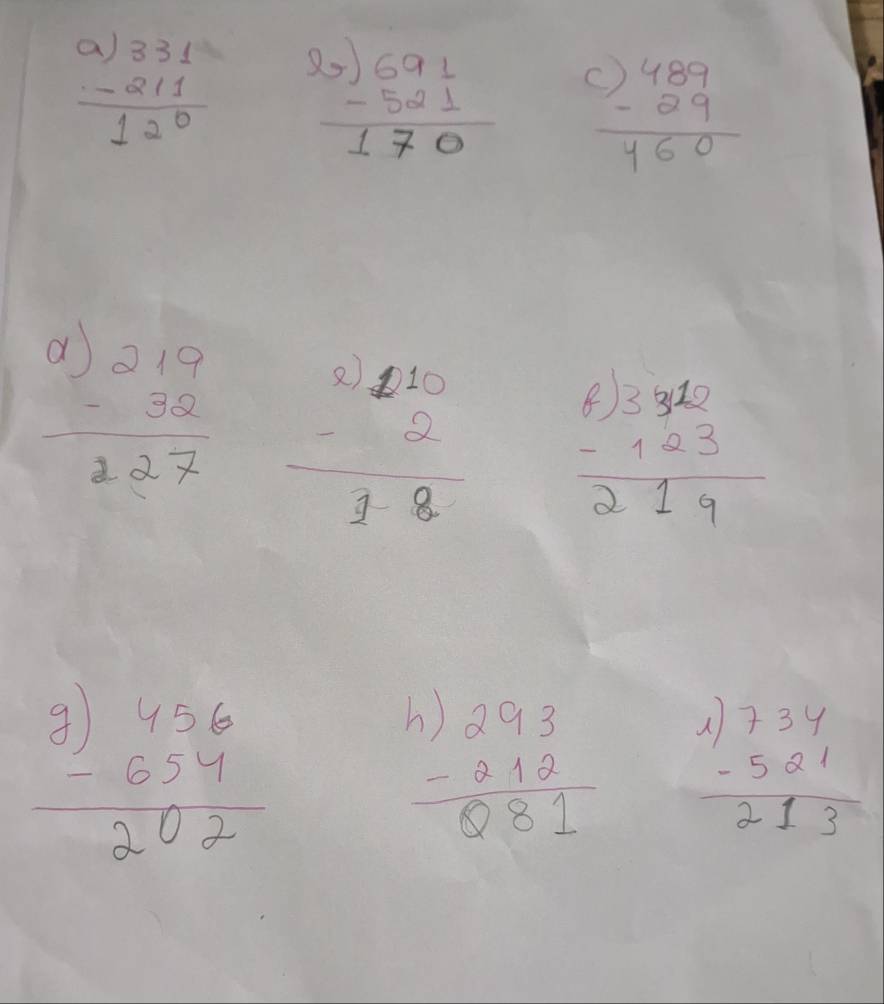 a) 331 b) 691 c) 489
- 211 - 521 - 29
120 170 460
d) 219 e) 210 f) 3312
- 32 - 2 - 123
227 18 219
g) 456 h) 293 i) 734
- 654 - 212 - 521
202 081 213